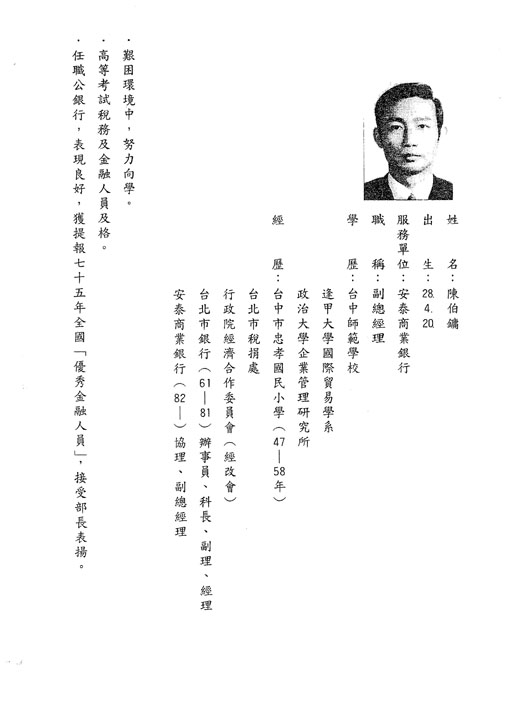 姓　名：陳伯鏞
出　生：28. 4. 20.
服務單位：安泰商業銀行
職　稱：副總經理
學　歷：台中師範學校
逢甲大學國際貿易學系
政治大學企業管理研究所
經　歷：台中市忠孝國民小學（47—58年）
台北市稅捐處
行政院經濟合作委員會（經改會）
台北市銀行（61—81）辦事員、科長、副理、經理
安泰商業銀行（82—）協理、副總經理
．艱困環境中，努力向學。
．高等考試稅務及金融人員及格。
．任職公銀行，表現良好，獲提報七十五年全國「優秀金融人員」，接受部長表揚。